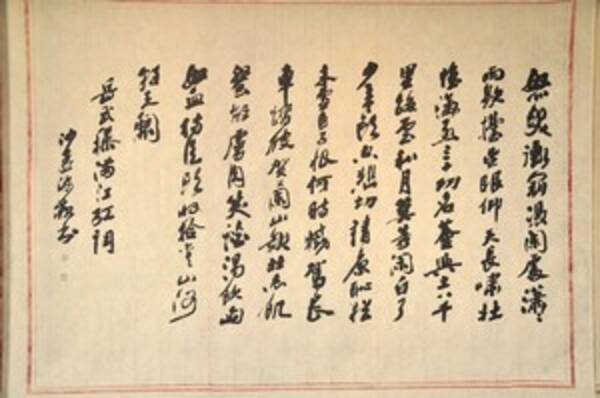 怒髮衝冠憑闌處瀟瀟
雨歇擡望眼仰天長嘯壯
懷激烈三十功名塵與土八千
里路雲和月莫等閒白了
少年頭空悲切靖康恥猶
未雪臣子恨何時滅駕長
車踏破賀蘭山缺壯志飢
餐胡虜肉笑談渴飲匈
奴血待從頭收拾舊山河
朝天闕
岳武穆滿江紅詞